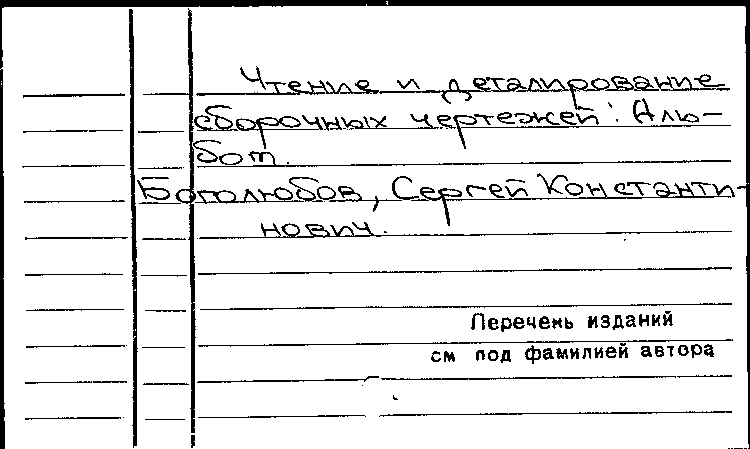 Чтение и деталирование
сборочных чертежей: Аль-
бом.
Боголюбов, Сергей Константи-
нович.
Перечень изданий
см под фамилией автора